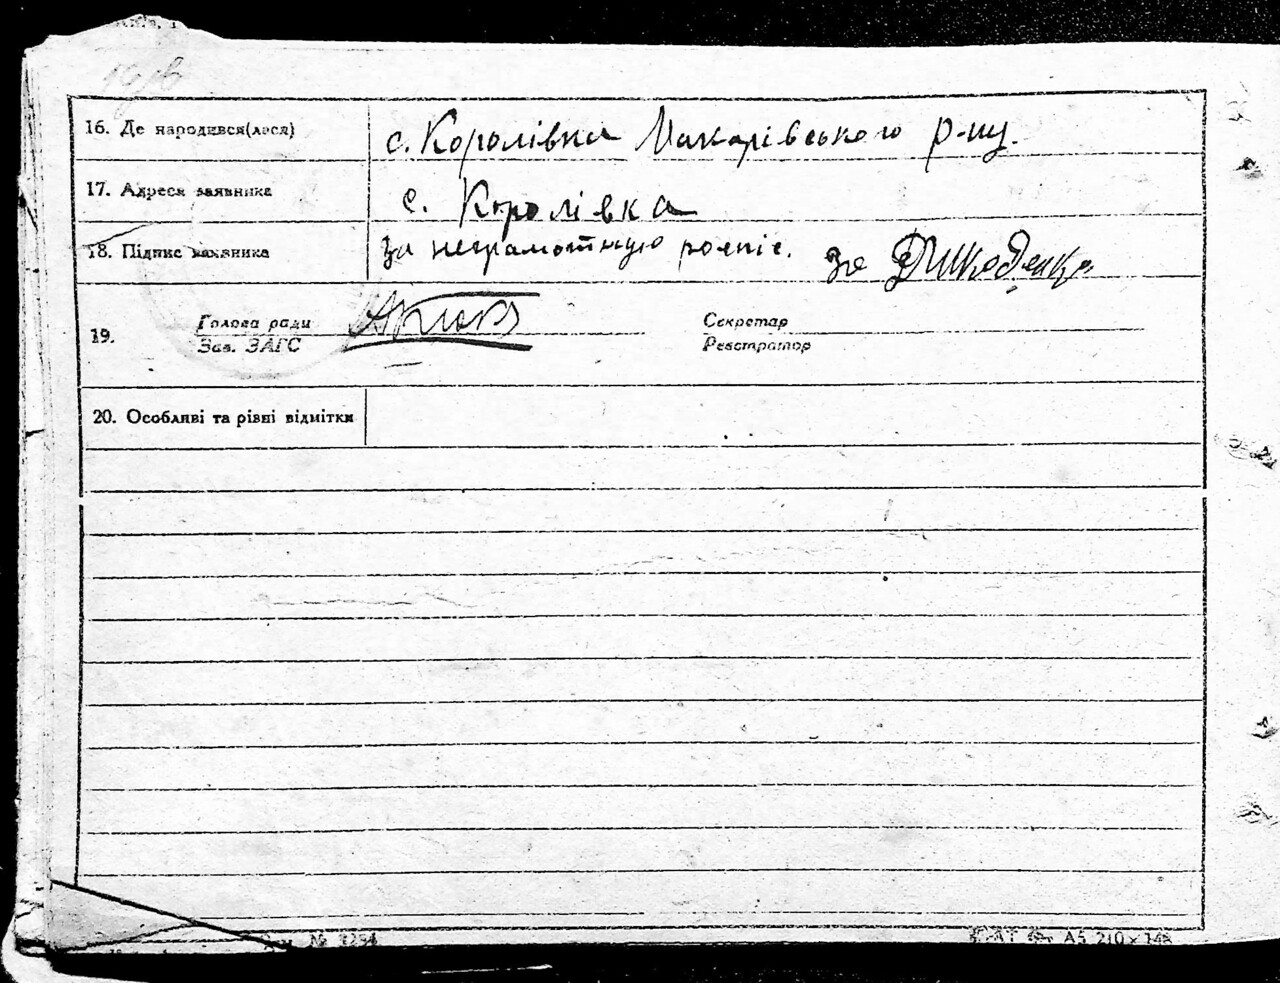 16. Де народився(лася) с. Королівка Макарівського р-ну.
17. Адреса заявника с. Королівка
18. Підпис заявника за неграмотную роспіс.
19. Голова ради Секретар
Зав. ЗАГС Реєстратор
20. Особливі та рівні відмітки
А5 210×148